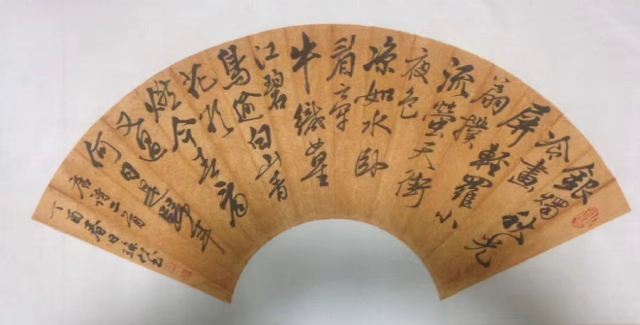 銀燭秋光
冷畫
屏輕羅小
扇撲
流螢天街
夜色
涼如水臥
看牽
牛織女星
江碧
鳥逾白山青
花欲
燃今春看
又過
何日是歸年
唐詩二首
丁酉春日